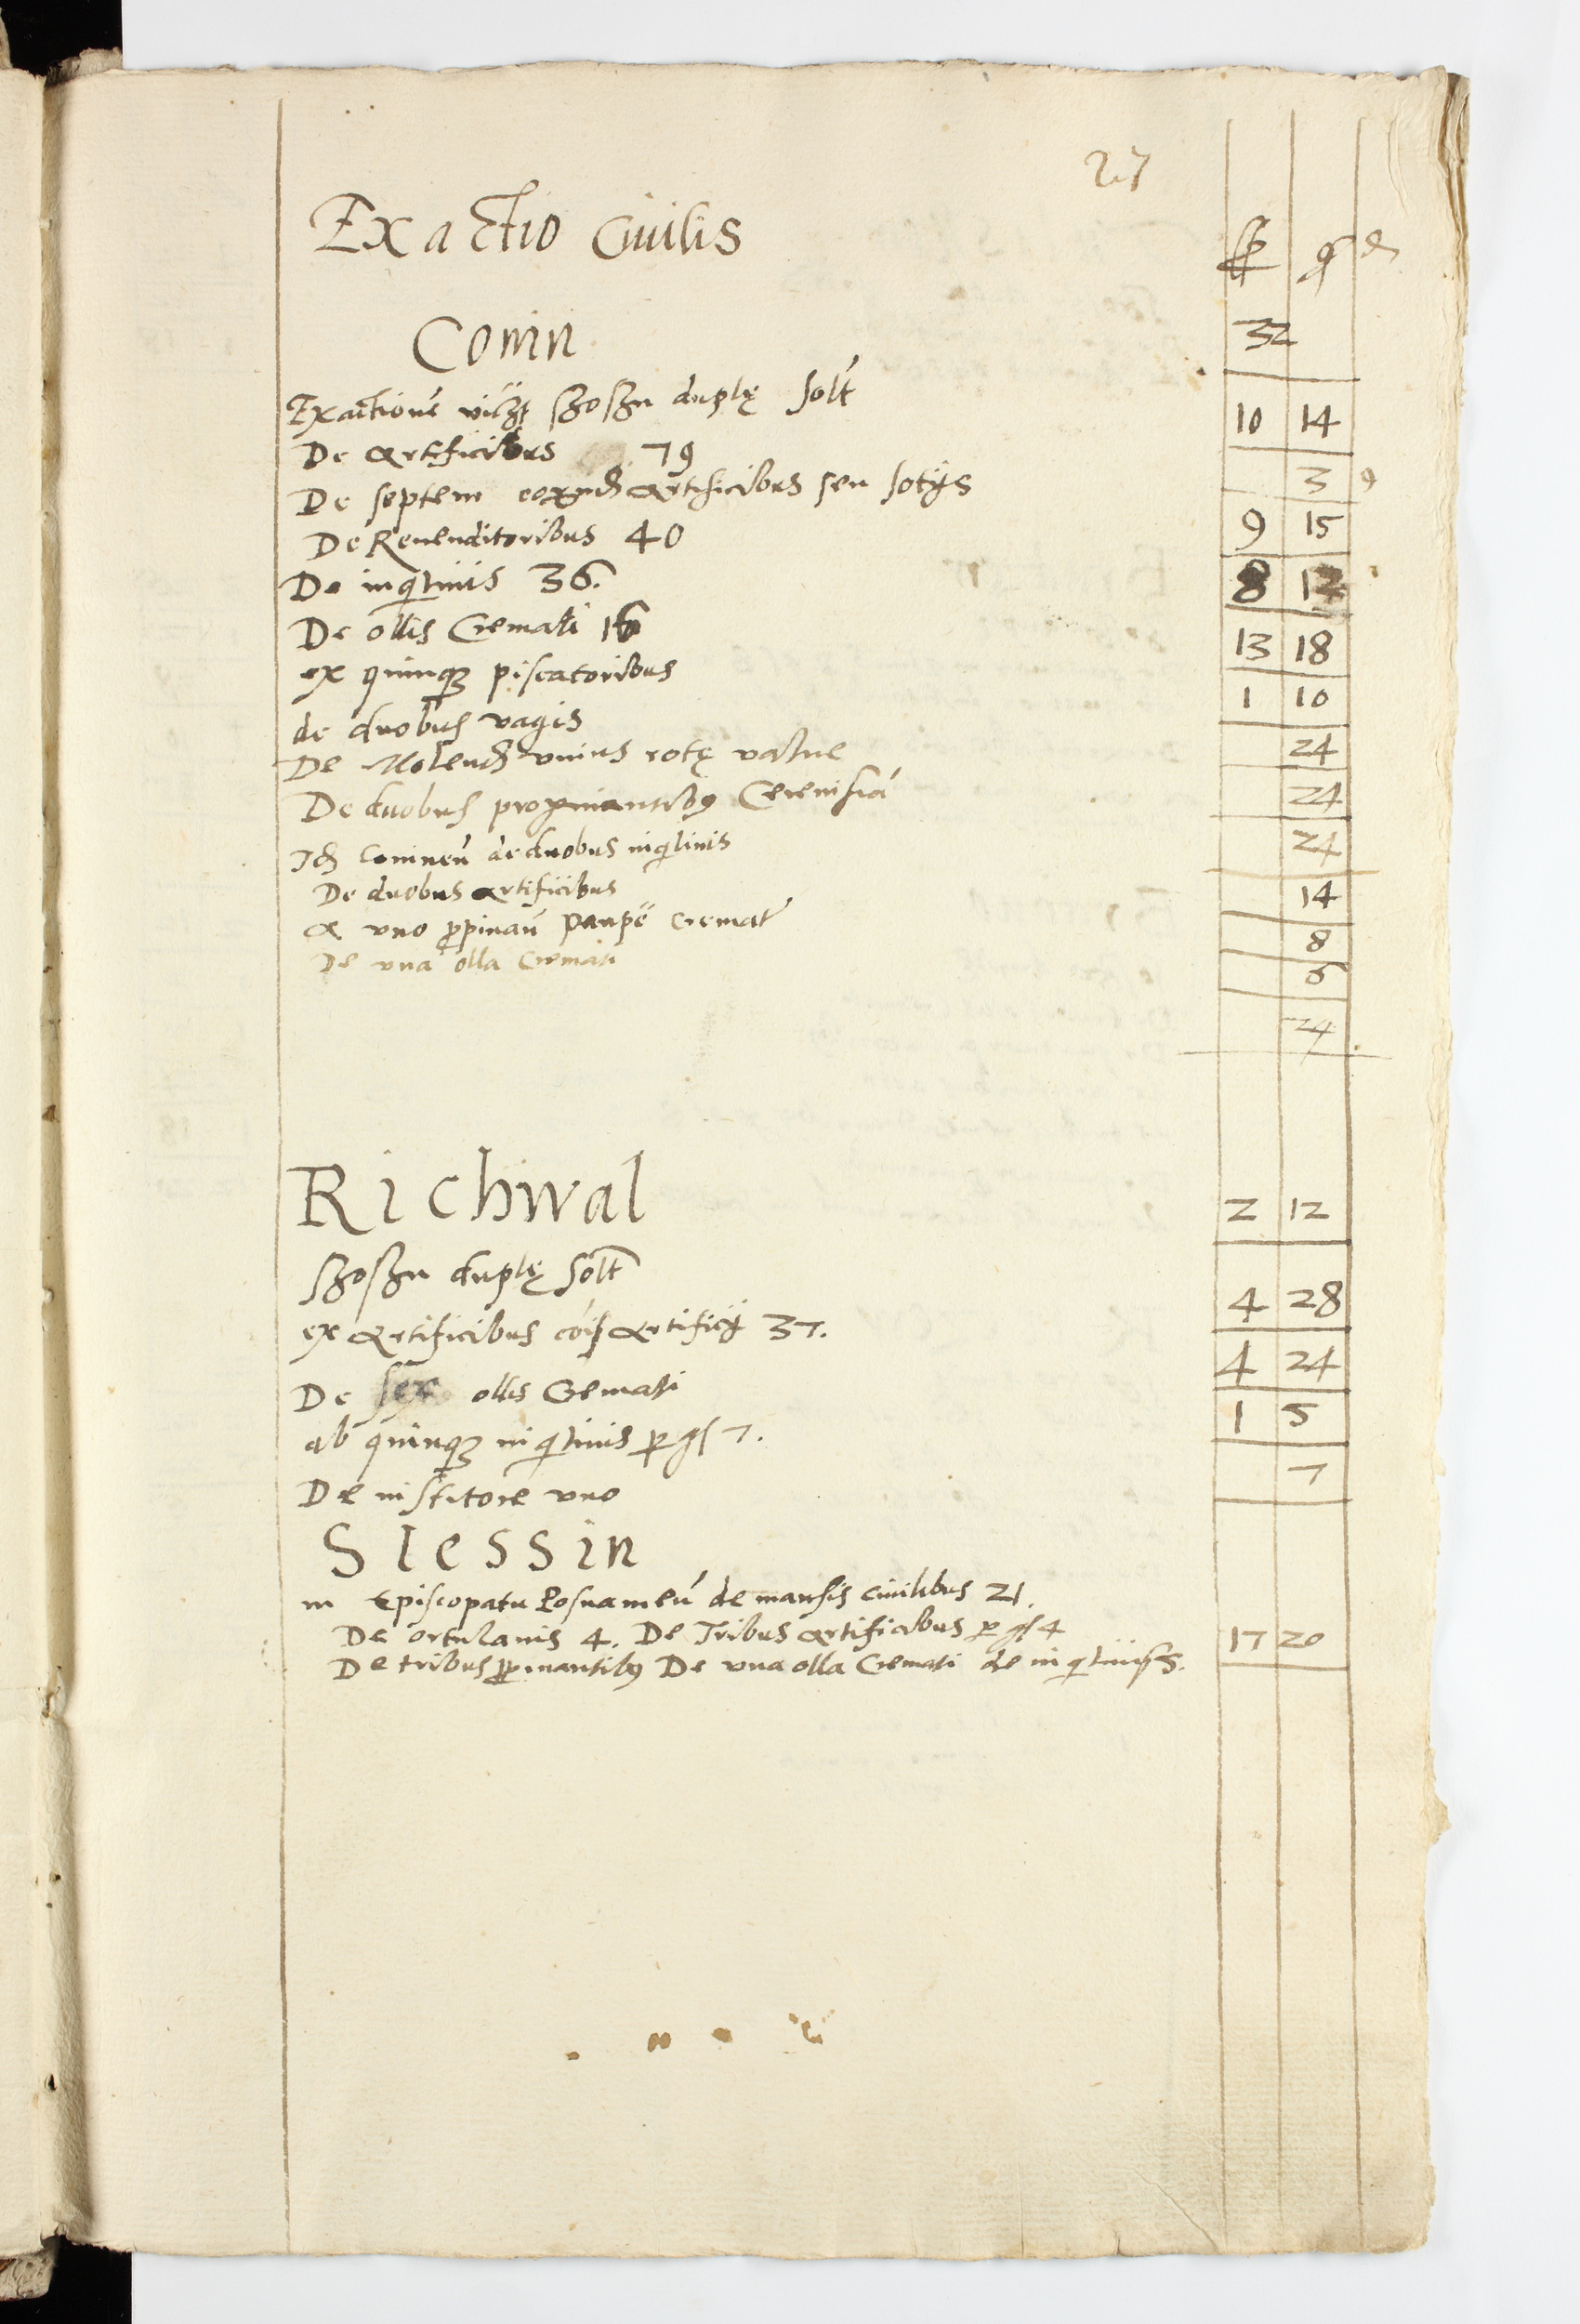 27
Exactio Ciuilis
Conin
32
Exactionẽ vidz szoszu duplę solt
10 14
De artificibus 79
3 9
De septem artificibus seu sotijs
9 15
De Reuenditoribus 40
8 12
De inqilinis 36.
13 18
De ollis Cremati 16
1 10
ex quinqz piscatoribus
24
de duobus vagis
24
De Molend vnius rotę value
24
De duobus propinantibg Cereuisiã
14
Itẽ Coninen de duobus inqilinis
8
De duobus artificibus
6
& vno ppinan paupe cremat
24
De vna olla Cremati
Richwal
2 12
szoszu duplę solt
4 28
ex artificibus cõis artificij 37.
4 24
De sex ollis Cremati
1 5
ab quinqz inqilinis p gs 7.
7
De institore vno
Slessin
in Episcopatu Posnanien de mansis ciuilibus 21.
De ortulanis 4. De Tribus artificibus p gs 4
17 20
De tribus ppinantibg De vna olla Cremati de inqilinis 5.